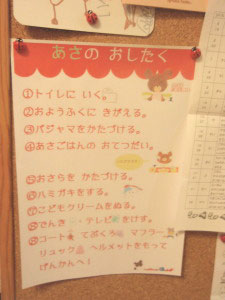 あさの おしたく
①トイレに いく。
②おようふくに きがえる。
③パジャマをかたづける。
④あさごはんの おてつだい。
⑤おさらを かたづける。
⑥ハミガキをする。
⑦こどもクリームをぬる。
⑧でんき テレビをけす。
⑨コート てぶくろ マフラー
リュック ヘルメットをもって
げんかんへ!